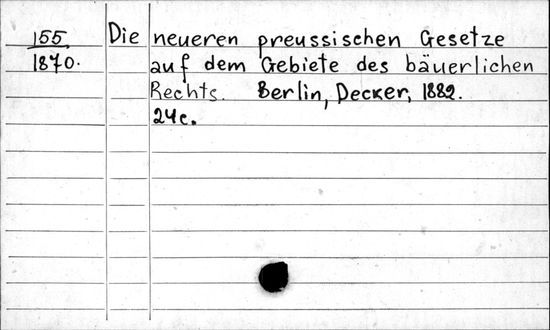 155 Die neueren preussischen Gesetze
1870. auf dem Gebiete des bäuerlichen
Rechts. Berlin, Decker, 1882.
24c.